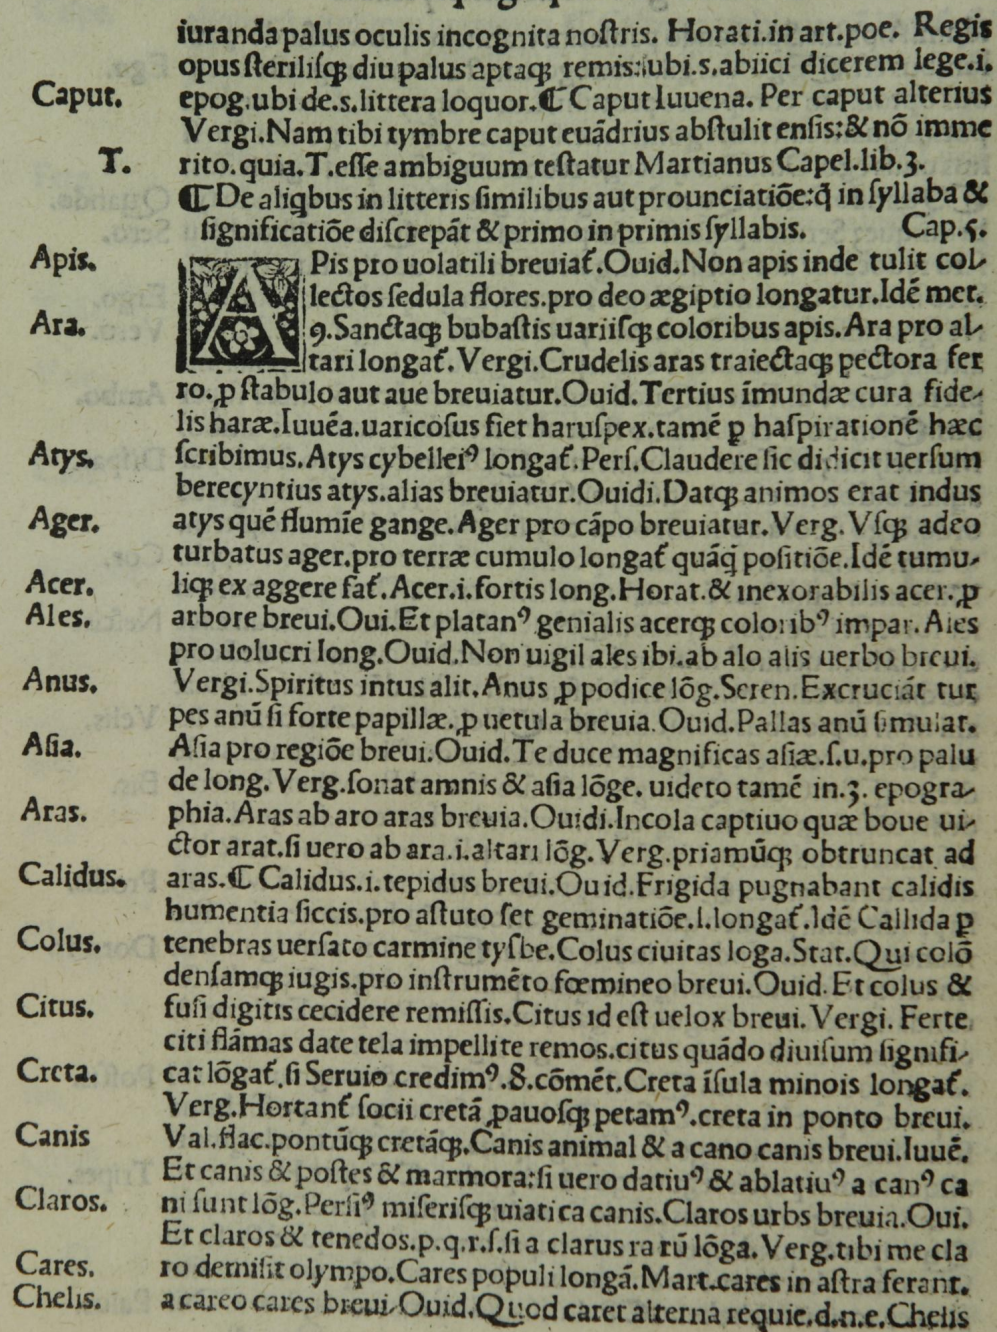 iuranda palus oculis incognita noſtris. Horati.in art.poe. Regis
opus ſteriliſq; diu palus aptaq; remis:ubi.s.abiici dicerem lege.i.
Caput. epog.ubi de.s.littera loquor.⁋ Caput Iuuena. Per caput alterius
Vergi.Nam tibi tymbre caput euãdrius abſtulit enſis:& nõ imme
T. rito.quia.T.eſſe ambiguum teſtatur Martianus Capel.lib.3.
⁋ De aliqbus in litteris ſimilibus aut prounciatiõe:q̃ in ſyllaba &
ſignificatiõe diſcrepãt & primo in primis ſyllabis. Cap.5.
Apis. APis pro uolatili breuiat᷑.Ouid.Non apis inde tulit col-
lectos ſedula flores.pro deo ægiptio longatur.Idẽ met.
Ara. 9.Sanctaq; bubaſtis uariiſq; coloribus apis.Ara pro al-
tari longat᷑.Vergi.Crudelis aras traiectaq; pectora fer
ro.ꝓ ſtabulo aut aue breuiatur.Ouid.Tertius ĩmundæ cura fide-
lis haræ.Iuuẽa.uaricoſus fiet haruſpex.tamẽ ꝑ haſpirationẽ hæc
Atys. ſcribimus.Atys cybelleiꝰ longat᷑.Perſ.Claudere ſic didicit uerſum
berecyntius atys.alias breuiatur.Ouidi.Datq; animos erat indus
Ager. atys quẽ flumĩe gange.Ager pro cãpo breuiatur.Verg.Vſq; adeo
turbatus ager.pro terræ cumulo longat᷑ quãq̃ poſitiõe.Idẽ tumu-
Acer. liq; ex aggere fat᷑.Acer.i.fortis long.Horat.& inexorabilis acer.ꝓ
Ales. arbore breui.Oui.Et platanꝰ genialis acerq; coloribꝰ impar.Ales
pro uolucri long.Ouid.Non uigil ales ibi.ab alo alis uerbo breui.
Anus. Vergi.Spiritus intus alit.Anus ꝓ podice lõg.Seren.Excruciãt tur
pes anũ ſi forte papillæ.ꝓ uetula breuia.Ouid.Pallas anũ ſimulat.
Aſia. Aſia pro regiõe breui.Ouid.Te duce magnificas aſiæ.ſ.u.pro palu
de long.Verg.ſonat amnis & aſia lõge. uideto tamẽ in.3. epogra-
Aras. phia.Aras ab aro aras breuia.Ouidi.Incola captiuo quæ boue ui-
ctor arat.ſi uero ab ara.i.altari lõg.Verg.priamũq; obtruncat ad
Calidus. aras.⁋ Calidus.i.tepidus breui.Ouid.Frigida pugnabant calidis
humentia ſiccis.pro aſtuto fet geminatiõe.l.longat᷑.Idẽ Callida ꝑ
Colus. tenebras uerſato carmine tyſbe.Colus ciuitas loga.Stat.Qui colõ
denſamq; iugis.pro inſtrumẽto fœmineo breui.Ouid.Et colus &
Citus. fuſi digitis cecidere remiſſis.Citus id eſt uelox breui.Vergi. Ferte
citi flãmas date tela impellite remos.citus quãdo diuiſum ſignifi-
Creta. cat lõgat᷑.ſi Seruio credimꝰ.8.cõmẽt.Creta ĩſula minois longat᷑.
Verg.Hortant᷑ ſocii cretã ꝓauoſq; petamꝰ.creta in ponto breui.
Canis Val.flac.pontũq; cretãq;.Canis animal & a cano canis breui.Iuuẽ.
Et canis & poſtes & marmora:ſi uero datiuꝰ & ablatiuꝰ a canꝰ ca
Claros. ni ſunt lõg.Perſiꝰ miſeriſq; uiatica canis.Claros urbs breuia.Oui.
Et claros & tenedos.p.q.r.ſ.ſi a clarus ra rũ lõga.Verg.tibi me cla
Cares. ro demiſit olympo.Cares populi longã.Mart.cares in aſtra ferant.
Chelis. a careo cares breui.Ouid.Quod caret alterna requie.d.n.e.Chelis